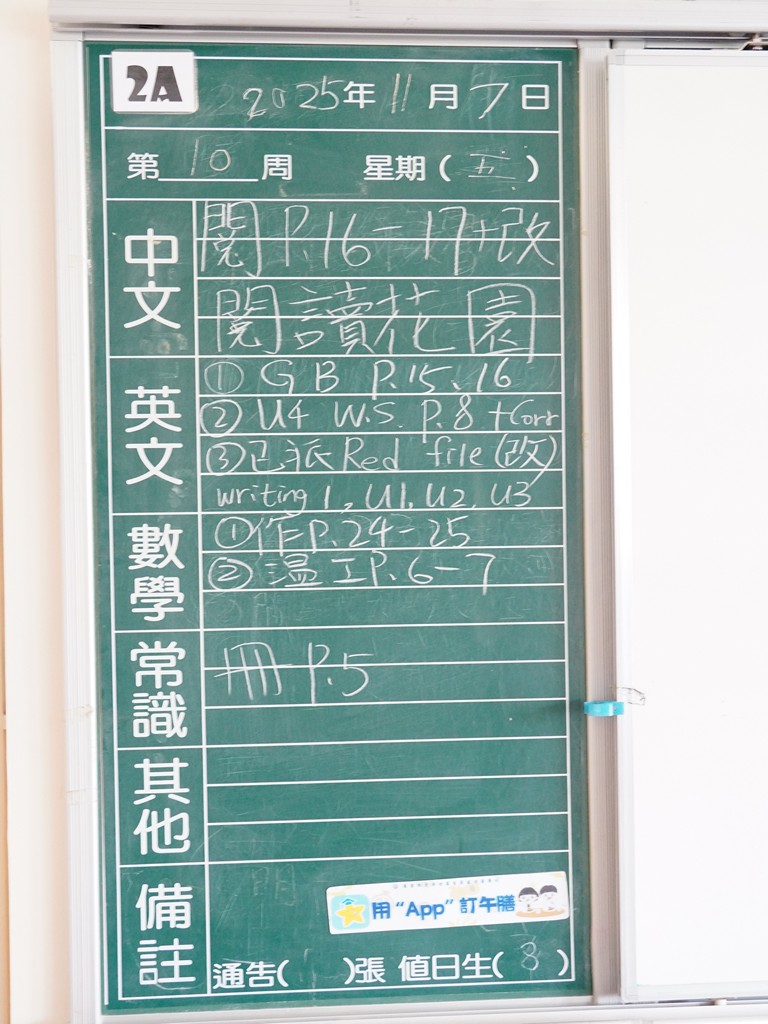 2A
2025年11月7日
第10周 星期(五)
中文
閱 P.16-17+改
閱讀花園
英文
① GB P.15、16
② U4 W.S. P.8 +Corr
③已派Red file (改)
writing 1, U1, U2, U3
數學
①作P.24-25
②溫工P.6-7
常識
冊 P.5
其他
備註
用“App”訂午膳
通告( )張 值日生(8)